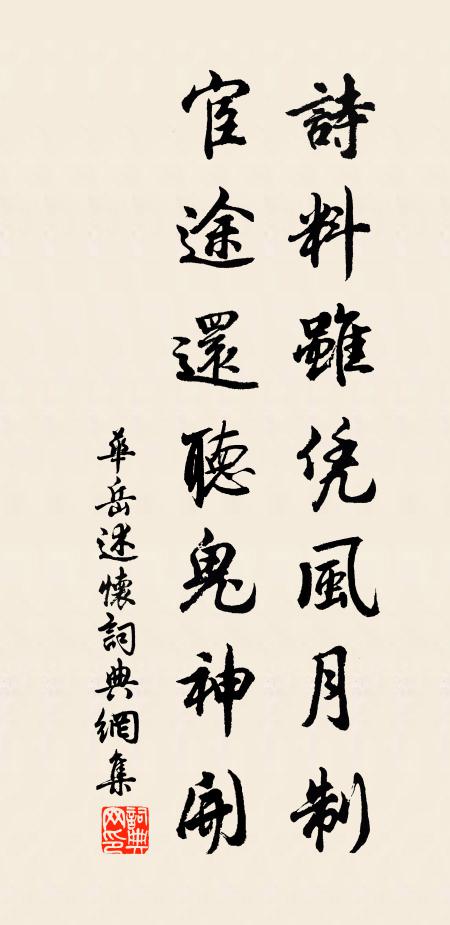 詩料雖凭風月制
宦途還聽鬼神開
華岳述懷詞典網集
詞典网印